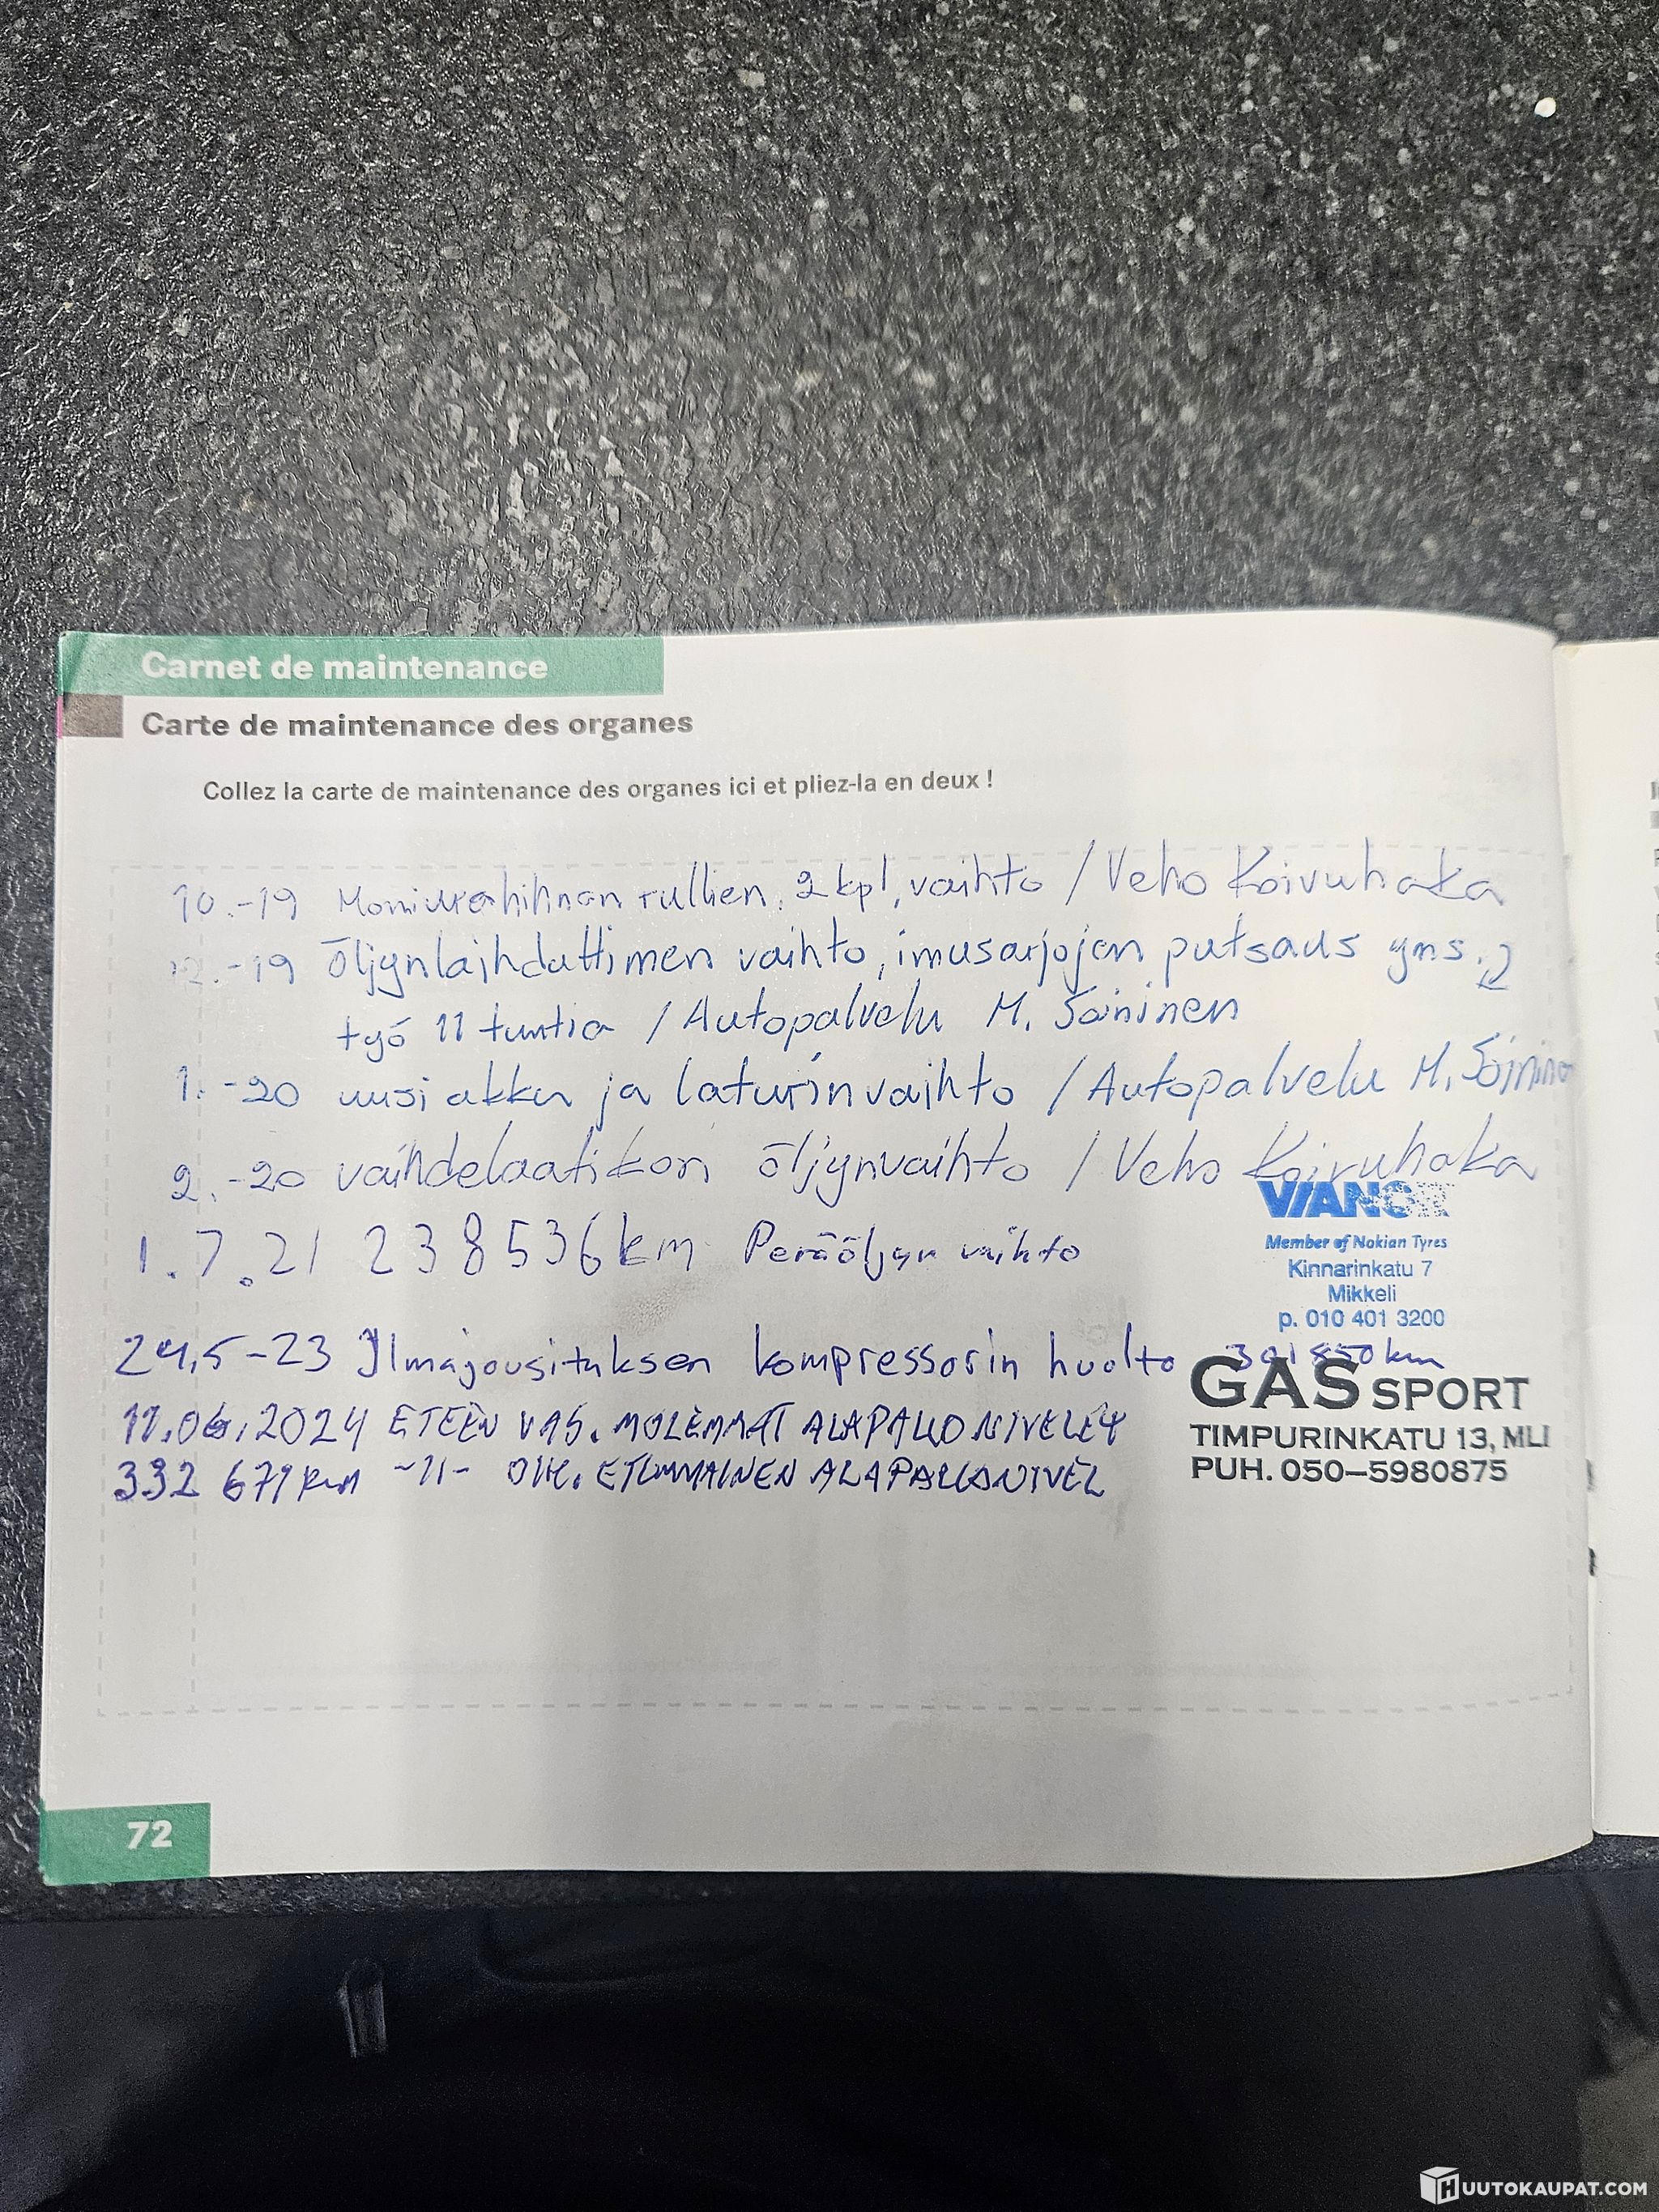 Carnet de maintenance
Carte de maintenance des organes
Collez la carte de maintenance des organes ici et pliez-la en deux !
10.-19 Moniurahihnan rullien, 2 kpl, vaihto / Veho Koivuhaka
12.-19 Öljynlaihduttimen vaihto, imusarjojen putsaus yms.
työ 11 tuntia / Autopalvelu M. Soininen
1.-20 uusi akku ja laturin vaihto / Autopalvelu M. Soininen
2.-20 vaihdelaatikon öljynvaihto / Veho Koivuhaka
VIANOR
1.7.21 238536km Peräöljyn vaihto
Member of Nokian Tyres
Kinnarinkatu 7
Mikkeli
p. 010 401 3200
24.5-23 Ilmajousituksen kompressorin huolto 301850km
GAS SPORT
11.06.2024 ETEEN VAS. MOLEMMAT ALAPALLONIVELET
TIMPURINKATU 13, MLI
332 679 km -11- OIK. ETUMMAINEN ALAPALLONIVEL
PUH. 050-5980875
72
HUUTOKAUPAT.COM